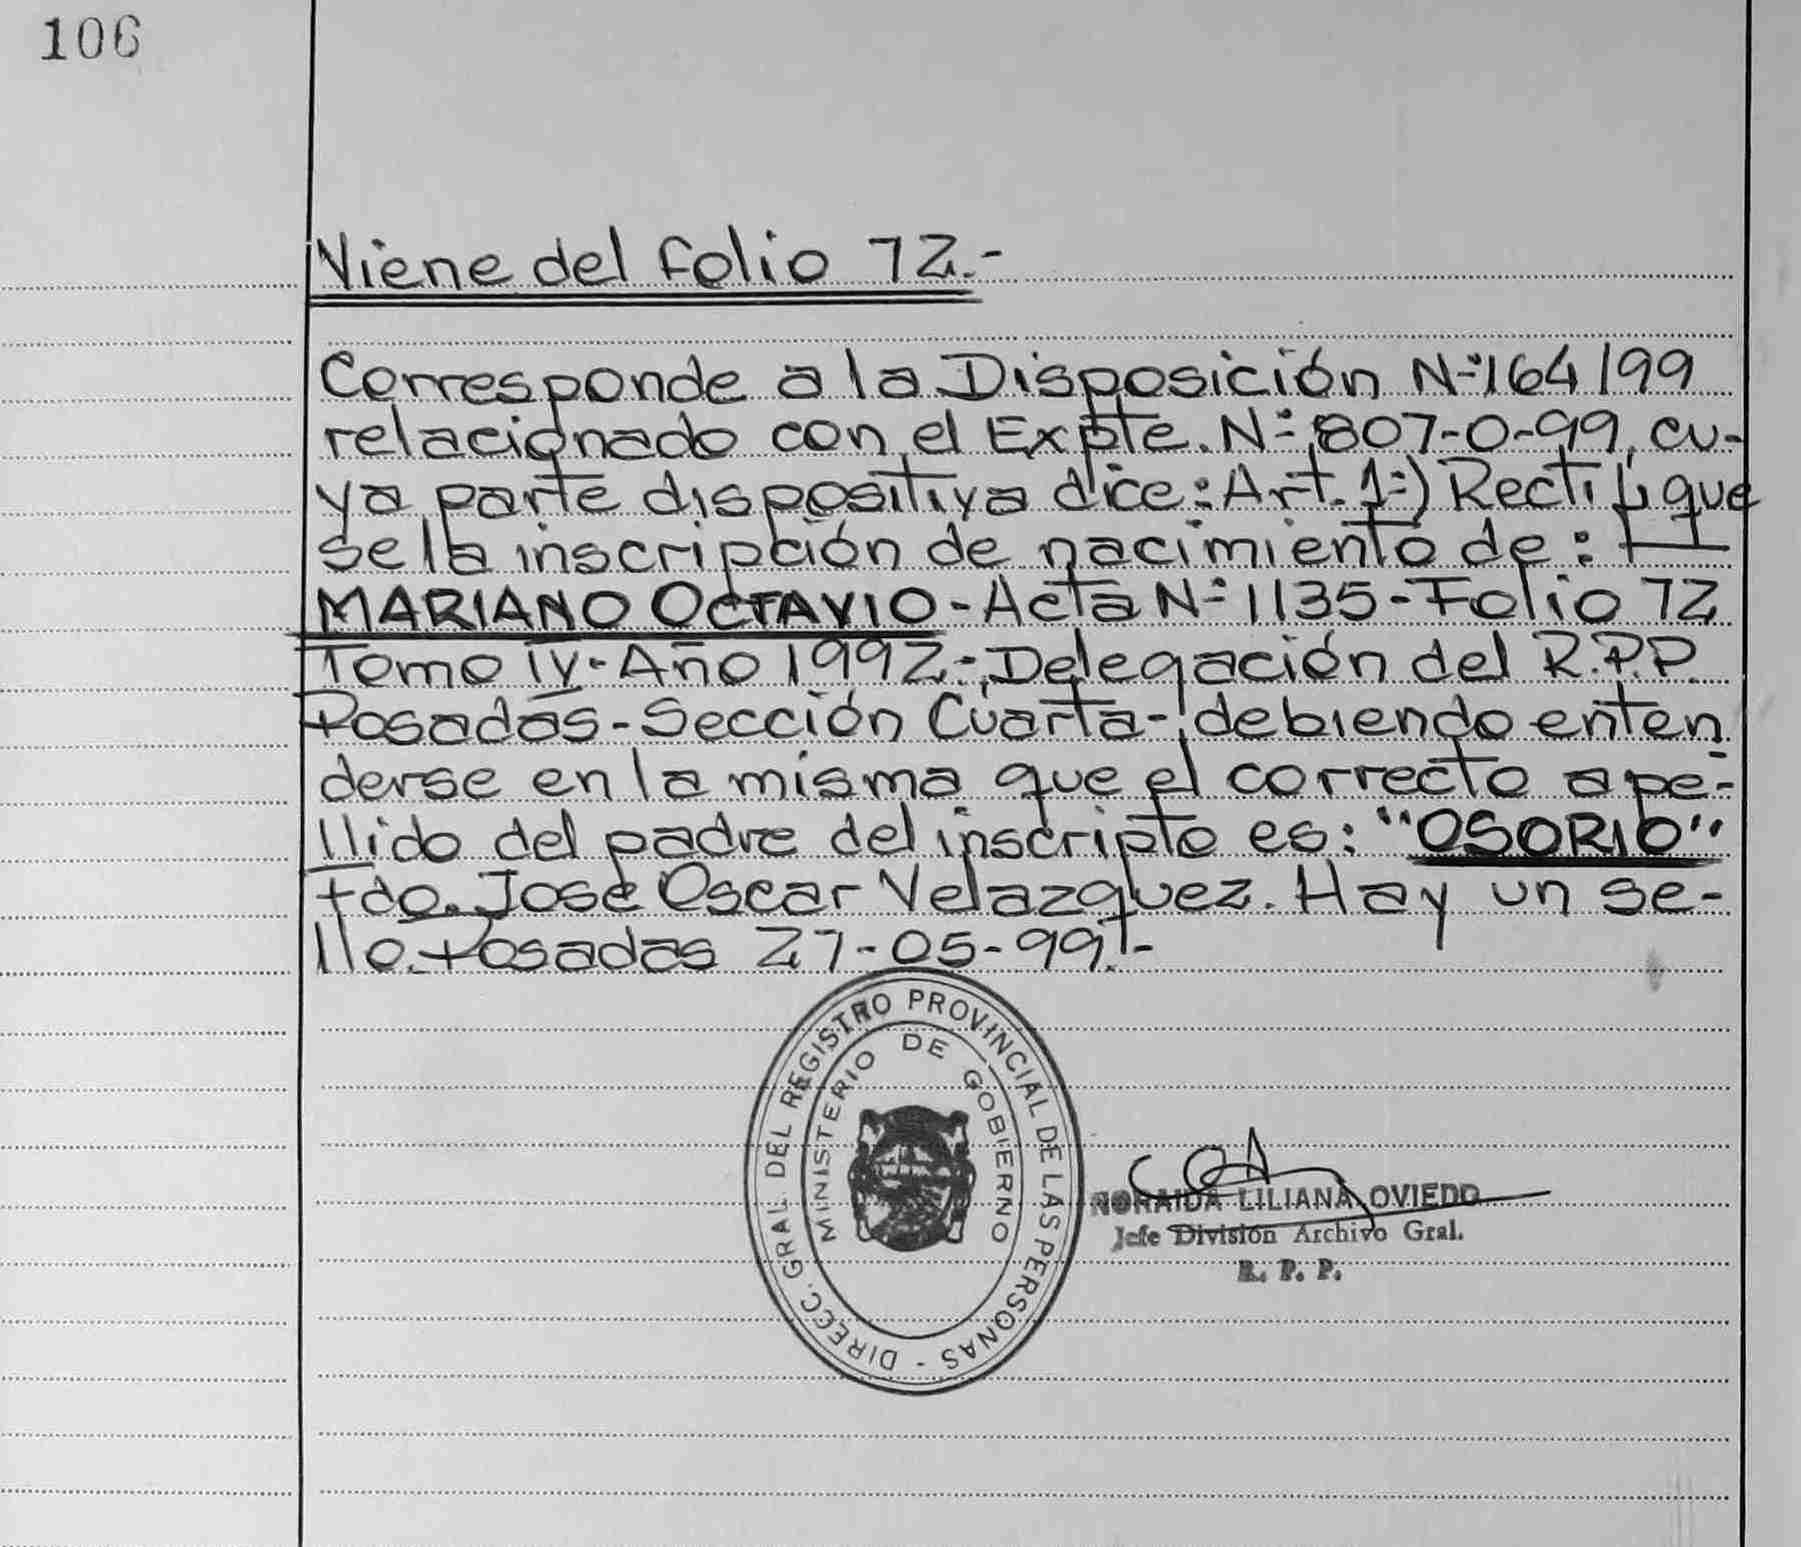 106
Viene del folio 72.-
Corresponde a la Disposición Nº 164/99
relacionado con el Expte. Nº 807-O-99, cu-
ya parte dispositiva dice: Art. 1º) Rectifique
se la inscripción de nacimiento de:
MARIANO OCTAVIO - Acta Nº 1135 - Folio 72
Tomo IV - Año 1992 -, Delegación del R.P.P.
Posadas - Sección Cuarta -, debiendo enten
derse en la misma que el correcto ape-
llido del padre del inscripto es: "OSORIO"
Fdo. José Oscar Velazquez. Hay un se-
llo. Posadas 27-05-99.-
DIRECC. GRAL DEL REGISTRO PROVINCIAL DE LAS PERSONAS -
MINISTERIO DE GOBIERNO
NORAIDA LILIANA OVIEDO
Jefe División Archivo Gral.
R. P. P.